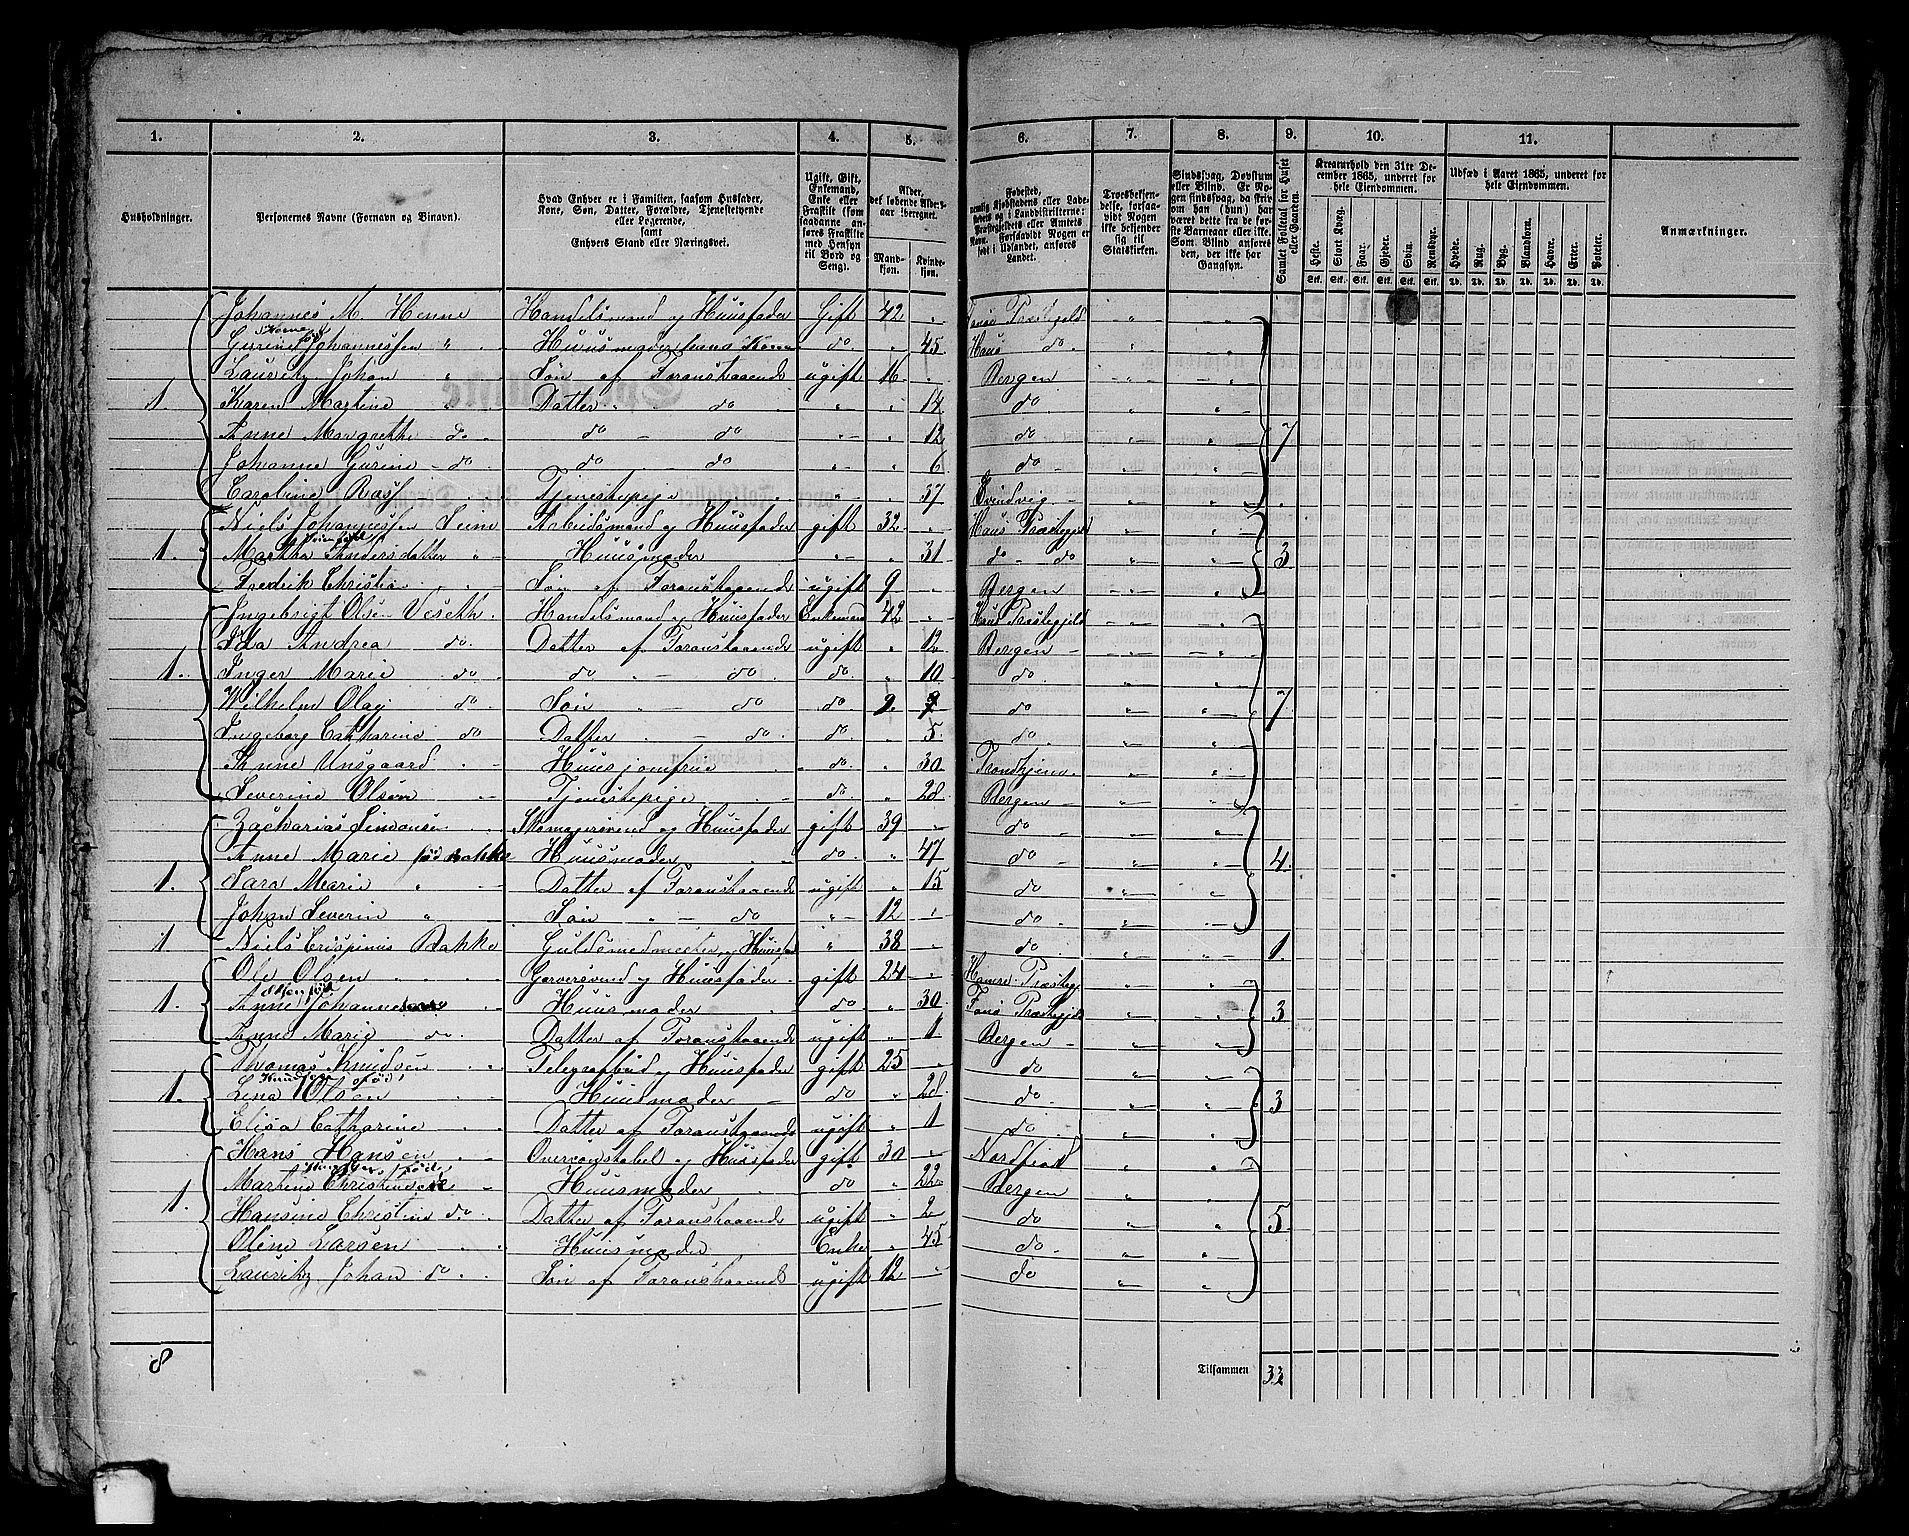 1. 2. 3. 4. 5. 6. 7. 8. 9. 10. 11.
Husholdninger.
Personernes Navne (Fornavn og Binavn).
Hvad Enhver er i Familien, saasom Husfader, Kone, Søn, Datter, Forældre, Tjenestetyende eller Logerende, samt Enhvers Stand eller Næringsvei.
Ugift, Gift, Enkemand, Enke eller Fraskilt (som saadanne anføres Fraskilte med Hensyn til Bord og Seng).
Alder, det løbende Alders-aar iberegnet.
Mandkjøn. Kvindekjøn.
Fødested, nemlig Kjøbstadens eller Ladestedets og i Landdistrikterne: Præstegjeldets eller Amtets Navn. Forsaavidt Nogen er født i Udlandet, anføres Landet.
Troesbekjendelse, forsaavidt Nogen ikke bekjender sig til Statskirken.
Sindssvag, Døvstum eller Blind. Er Nogen sindssvag, da skriv om han (hun) har været dette fra de første Barneaar eller ikke. Som Blind anføres den, der ikke har Gangsyn.
Samlet Folketal for Huset eller Gaarden.
Kreaturhold den 31te December 1865, underet for hele Eiendommen.
Heste. Stort Kvæg. Faar. Gjeder. Svin. Rensdyr.
Stk. Stk. Stk. Stk. Stk. Stk.
Udsæd i Aaret 1865, underet for hele Eiendommen.
Hvede. Rug. Byg. Blandkorn. Havre. Erter. Poteter.
Td. Td. Td. Td. Td. Td. Td.
Anmærkninger.
Johannes M. Henne Handelsmand og Huusfader Gift 42 Præstegjeld
Henne fød
Gurine Johannessen " Huusmoder hans Kone do. 45 Haus do.
Lauritz Johan " Søn af Foranstaaende ugift 16 Bergen
1. Karen Martine " Datter - do " 14 do
Anne Margrethe do do - do " 12 do 7
Johanne Gurine do do - do " 6 do
Caroline Rasf Tjenestepige " 37 Evindvig
Niels Johannessen Seim Arbeidsmand og Huusfader gift 32 Haus Præstegjeld
Seim fød
1. Martha Andersdatter " Huusmoder " 31 do - do 3
Fredrik Christia Søn af Foranstaaende ugift 9 Bergen
Ingebrigt Olsen Veseth Handelsmand og Huusfader Enkemand 42 Haus Præstegjeld
Ida Andrea do. Datter af Foranstaaende ugift 12 Bergen
1. Inger Marie do do - do do. 10 do.
Wilhelm Olaj do Søn - do do 9. do 7
Ingeborg Catharine do Datter - do do. 5 do.
Anne Unsgaard Huusjomfrue do. 30 Trondhjem
Severine Olsen Tjenestepige do " 28 Bergen
Zacharias Simonsen Skomagersvend og Huusfader gift 39 do
Anne Marie fød Bakke Huusmoder do. 47 do 4.
1. Sara Marie " Datter af Foranstaaende ugift 15 do
Johan Severin " Søn " - do " 12 do.
1. Niels Crispinus Bakke Guldsmedmester og Huusfad " 38 do. 1
Ole Olsen Garversvend og Huusfader gift 24 Hamre Præsteg.
Olsen fød
1. Anne Johannesen Huusmoder do 30 Præstegjeld 3
Anne Marie do. Datter af Foranstaaende ugift 1 Bergen
Thomas Knudsen Telegrafbud og Huusfader gift 25 do
Knudsen fød
1. Lina Olsen Huusmoder do 28. do. 3
Elisa Catharine Datter af Foranstaaende ugift 1 do.
Hans Hansen Overconstabel og Huusfader gift 30 Nordfiord
Hansen fød
Martine Christensen Huusmoder do 22 Bergen
1. Hansine Christine do. Datter af Foranstaaende ugift 2 do 5.
Oline Larsen Huusmoder Enke 45 do.
Lauritz Johan do Søn af Foranstaaende ugift 12 do
8 Tilsammen 33